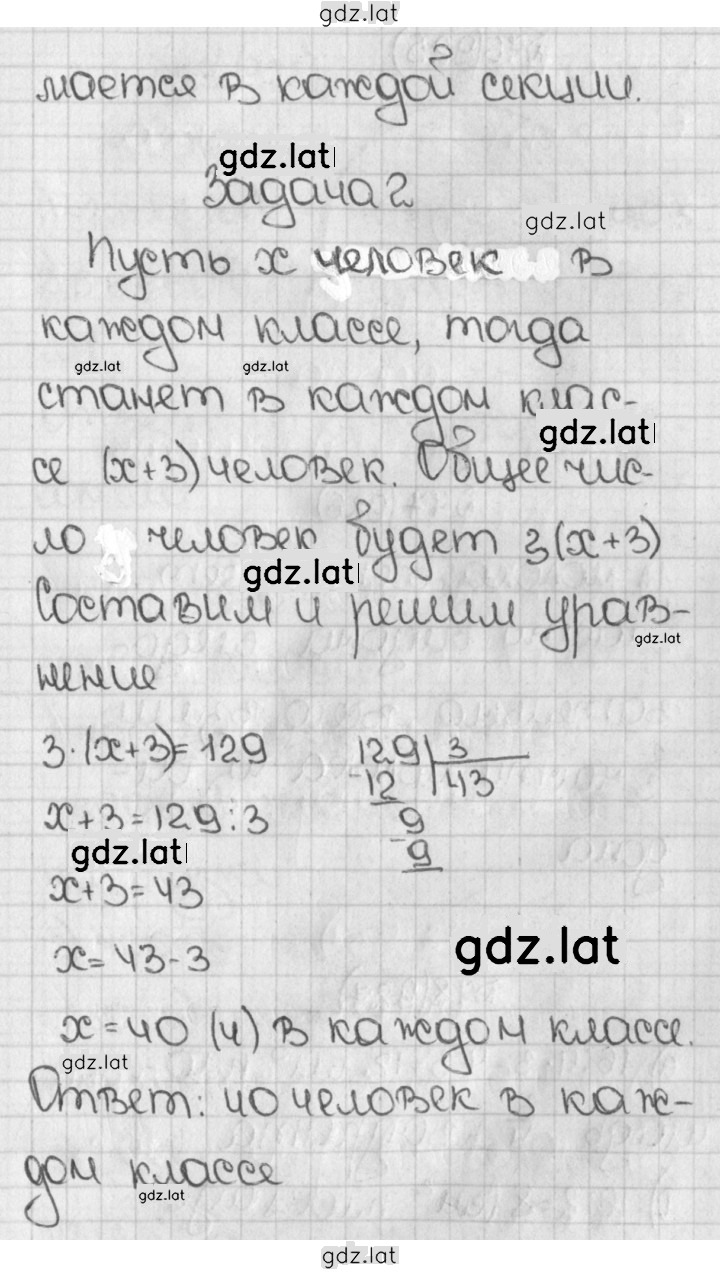 gdz.lat
мается в каждой секции.
gdz.lat
Задача 2
gdz.lat
Пусть x человек в
каждом классе, тогда
gdz.lat gdz.lat
станет в каждом клас-
gdz.lat
се (x+3) человек. Общее чис-
ло человек будет 3(x+3)
gdz.lat
Составим и решим урав-
gdz.lat
нение
3·(x+3)=129 129 3
-12 43
x+3=129:3 9
-9
gdz.lat
x+3=43
gdz.lat
x=43-3
x=40 (ч) в каждом классе.
gdz.lat
Ответ: 40 человек в каж-
дом классе
gdz.lat
gdz.lat